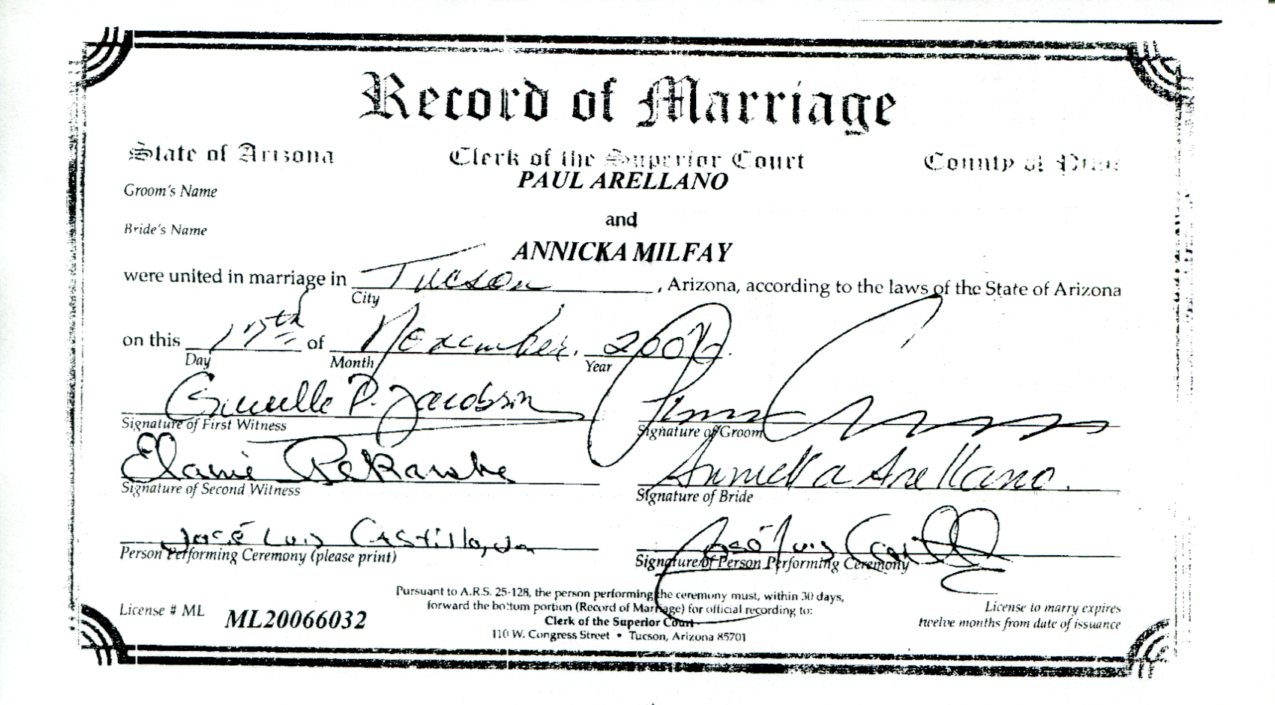 Record of Marriage
State of Arizona Clerk of the Superior Court County of Pima
Groom's Name PAUL ARELLANO
and
Bride's Name ANNICKA MILFAY
were united in marriage in Tucson, Arizona, according to the laws of the State of Arizona
City
on this 17th of November, 2006.
Day Month Year
P. Jacobson
Signature of First Witness Signature of Groom
Elaine Annicka Arellano.
Signature of Second Witness Signature of Bride
José Luis Castillo, Jr José Luis Castillo
Person Performing Ceremony (please print) Signature of Person Performing Ceremony
Pursuant to A.R.S. 25-128, the person performing the ceremony must, within 30 days,
forward the bottom portion (Record of Marriage) for official recording to:
Clerk of the Superior Court
110 W. Congress Street • Tucson, Arizona 85701
License # ML ML20066032
License to marry expires
twelve months from date of issuance